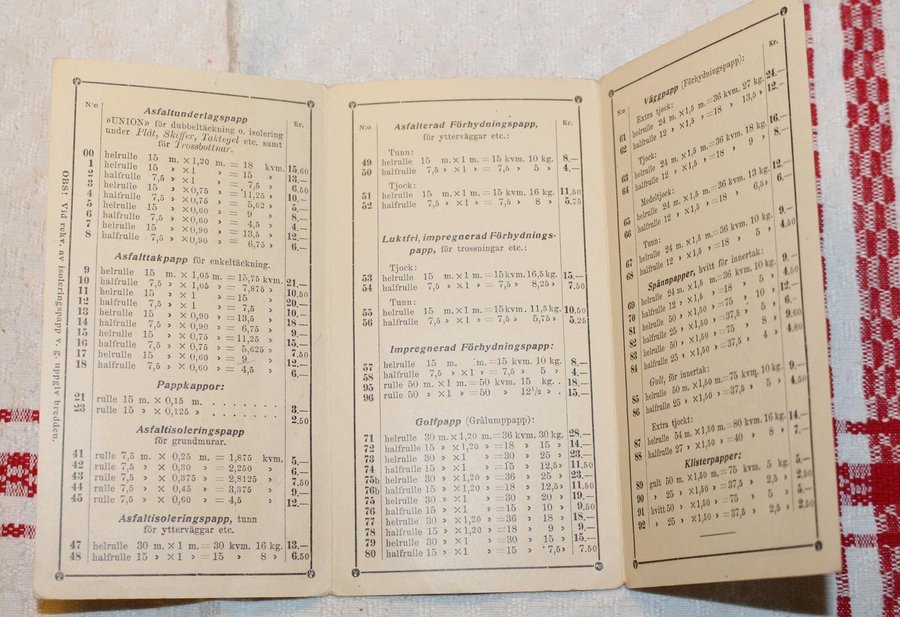 OBS! Vid rekv. av isoleringspapp v. g. uppgiv bredden.
N:o Kr.
Asfaltunderlagspapp
»UNION» för dubbeltäckning o. isolering
under Plåt, Skiffer, Taktegel etc. samt
för Trossbottnar.
00 helrulle 15 m. × 1,20 m. = 18 kvm. 15,60
1 helrulle 15 » × 1 » = 15 » 13,—
2 halfrulle 7,5 » × 1 » = 7,5 » 6,50
3 helrulle 15 » × 0,75 » = 11,25 » 10,—
4 halfrulle 7,5 » × 0,75 » = 5,62 » 5,—
5 helrulle 15 » × 0,60 » = 9 » 8,—
6 halfrulle 7,5 » × 0,60 » = 4,5 » 4,—
7 helrulle 15 » × 0,90 » = 13,5 » 12,—
8 halfrulle 7,5 » × 0,90 » = 6,75 » 6,—
Asfalttakpapp för enkeltäckning.
9 helrulle 15 m. × 1,05 m. = 15,75 kvm. 21,—
10 halfrulle 7,5 » × 1,05 » = 7,875 » 10,50
11 helrulle 15 » × 1 » = 15 » 20,—
12 halfrulle 7,5 » × 1 » = 7,5 » 10,—
13 helrulle 15 » × 0,90 » = 13,5 » 18,—
14 halfrulle 7,5 » × 0,90 » = 6,75 » 9,—
15 helrulle 15 » × 0,75 » = 11,25 » 15,—
16 halfrulle 7,5 » × 0,75 » = 5,625 » 7,50
17 helrulle 15 » × 0,60 » = 9 » 12,—
18 halfrulle 7,5 » × 0,60 » = 4,5 » 6,—
Pappkappor:
21 rulle 15 m. × 0,15 m. . . . . . . . . 3,—
23 rulle 15 » × 0,125 » . . . . . . . . 2,50
Asfaltisoleringspapp
för grundmurar.
41 rulle 7,5 m. × 0,25 m = 1,875 kvm. 5,—
42 rulle 7,5 » × 0,30 » = 2,250 » 6,—
43 rulle 7,5 » × 0,375 » = 2,8125 » 7,50
44 rulle 7,5 » × 0,45 » = 3,375 » 9,—
45 rulle 7,5 » × 0,60 » = 4,5 » 12,—
Asfaltisoleringspapp, tunn
för ytterväggar etc.
47 helrulle 30 m. × 1 m. = 30 kvm. 16 kg. 13,—
48 halfrulle 15 » × 1 » = 15 » 8 » 6,50
N:o Kr.
Asfalterad Förhydningspapp,
för ytterväggar etc.:
Tunn:
49 helrulle 15 m. × 1 m. = 15 kvm. 10 kg. 8,—
50 halfrulle 7,5 » × 1 » = 7,5 » 5 » 4,—
Tjock:
51 helrulle 15 m. × 1 m. = 15 kvm. 16 kg. 11,50
52 halfrulle 7,5 » × 1 » = 7,5 » 8 » 5,75
Luktfri, impregnerad Förhydnings-
papp, för trossningar etc.:
Tjock:
53 helrulle 15 m. × 1 m. = 15 kvm. 16,5 kg. 15,—
54 halfrulle 7,5 » × 1 » = 7,5 » 8,25 » 7,50
Tunn:
55 helrulle 15 m. × 1 m. = 15 kvm. 11,5 kg. 10,50
56 halfrulle 7,5 » × 1 » = 7,5 » 5,75 » 5,25
Impregnerad Förhydningspapp:
57 helrulle 15 m. m. = 15 kvm. 10 kg. 8,—
58 halfrulle 7,5 » × 1 » = 7,5 » 5 » 4,—
95 rulle 50 m. × 1 m. = 50 kvm. 15 kg. » 18,—
96 rulle 50 » × 1 » = 50 » 12½ » . 15,—
Golfpapp (Grålumppapp):
71 helrulle 30 m. × 1,20 m. = 36 kvm. 30 kg. 28,—
72 halfrulle 15 » × 1,20 » = 18 » 15 » 14,—
73 helrulle 30 » × 1 » = 30 » 25 » 23,—
74 halfrulle 15 » × 1 » = 15 » 12,5 » 11,50
75b helrulle 30 » × 1,20 » = 36 » 25 » 23,—
76b halfrulle 15 » × 1,20 » = 18 » 12,5 » 11,50
75 helrulle 30 » × 1 » = 30 » 20 » 19,—
76 halfrulle 15 » × 1 » = 15 » 10 » 9,50
77 helrulle 30 » × 1,20 » = 36 » 18 » 18,—
78 halfrulle 15 » × 1,20 » = 18 » 9 » 9,—
79 helrulle 30 » × 1 » = 30 » 15 » 15,—
80 halfrulle 15 » × 1 » = 15 » 7,5 » 7,50
Kr.
Väggpapp (Förhydningspapp):
Extra tjock:
61 helrulle 24 m. × 1,5 m. = 36 kvm. 27 kg. 24,—
62 halfrulle 12 » × 1,5 » = 18 » 13,5 » 12,—
Tjock:
63 helrulle 24 m. × 1,5 m. = 36 kvm. 18 kg. 16,—
64 halfrulle 12 » × 1,5 » = 18 » 9 » 8,—
Medeltjock:
65 helrulle 24 m. × 1,5 m. = 36 kvm. 13 kg. 12,—
66 halfrulle 12 » × 1,5 » = 18 » 6,5 » 6,—
Tunn:
67 helrulle 24 m. × 1,5 m. = 36 kvm. 10 kg. 9,—
68 halfrulle 12 » × 1,5 » = 18 » 5 » 4,50
Spännpapper, hvitt för innertak:
69 helrulle 24 m. × 1,5 m. = 36 kvm. 10 kg. 9,—
70 halfrulle 12 » × 1,5 » = 18 » 5 » 4,50
81 helrulle 50 » × 1,50 » = 75 » 10 » 12,—
82 halfrulle 25 » × 1,50 » = 37,5 » 5 » 6,—
83 helrulle 50 » × 1,50 » = 75 » 8 » 9,60
84 halfrulle 25 » × 1,50 » = 37,5 » 4 » 4,80
Gult, för innertak:
85 helrulle 50 m. × 1,50 m. = 75 kvm. 10 kg. 9,—
86 halfrulle 25 » × 1,50 » = 37,5 » 5 » 4,50
Extra tjockt:
87 helrulle 54 m. × 1,50 m. = 80 kvm. 16 kg. 14,—
88 halfrulle 27 » × 1,50 » = 40 » 8 » 7,—
Klisterpapper:
89 gult 50 m. × 1,50 m. = 75 kvm. 5 kg. 5,—
90 » 25 » × 1,50 » = 37,5 » 2,5 » 2,50
91 hvitt 50 » × 1,50 » = 75 » 5 » 5,—
92 » 25 » × 1,50 » = 37,5 » 2,5 » 2,50